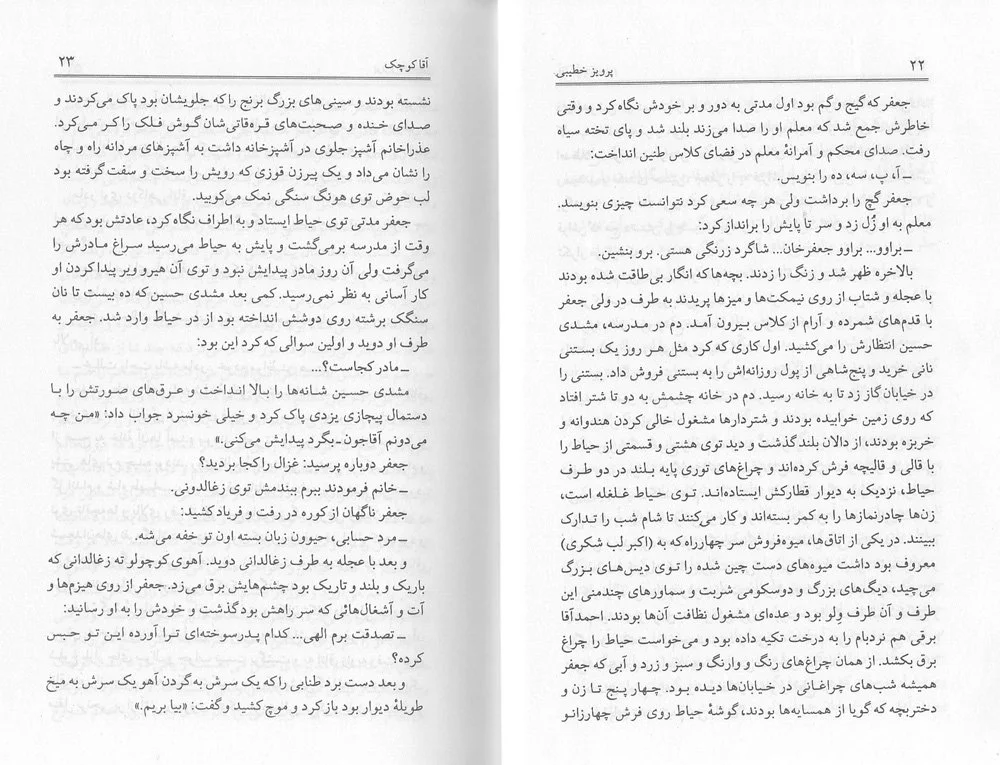 ۲۲
پرویز خطیبی
جعفر که گیج و گم بود اول مدتی به دور و بر خودش نگاه کرد و وقتی
خاطرش جمع شد که معلم او را صدا می‌زند بلند شد و پای تخته سیاه
رفت. صدای محکم و آمرانهٔ معلم در فضای کلاس طنین انداخت:
ــ آ، پ، سه، ده را بنویس.
جعفر گچ را برداشت ولی هر چه سعی کرد نتوانست چیزی بنویسد.
معلم به او زُل زد و سر تا پایش را برانداز کرد:
ــ براوو... براوو جعفرخان... شاگرد زرنگی هستی. برو بنشین.
بالاخره ظهر شد و زنگ را زدند. بچه‌ها که انگار بی‌طاقت شده بودند
با عجله و شتاب از روی نیمکت‌ها و میزها پریدند به طرف در ولی جعفر
با قدم‌های شمرده و آرام از کلاس بیرون آمـد. دم در مدرسه، مشدی
حسین انتظارش را می‌کشید. اول کاری که کرد مثل هـر روز یک بستنی
نانی خرید و پنج‌شاهی از پول روزانه‌اش را به بستنی فروش داد. بستنی را
در خیابان گاز زد تا به خانه رسید. دم در خانه چشمش به دو تا شتر افتاد
که روی زمین خوابیده بودند و شتردارها مشغول خالی کردن هندوانه و
خربزه بودند، از دالان بلند گذشت و دید توی هشتی و قسمتی از حیاط را
با قالی و قالیچه فرش کرده‌اند و چراغ‌های توری پایه بـلند در دو طرف
حیاط، نزدیک به دیوار قطارکش ایستاده‌انـد. تـوی حـیاط غـلغله است،
زن‌ها چادرنمازها را به کمر بسته‌اند و کار می‌کنند تا شام شب را تـدارک
ببینند. در یکی از اتاق‌ها، میوه‌فروش سر چهارراه که به (اکبر لب شکری)
معروف بود داشت میوه‌های دست چین شده را توی دیس‌های بـزرگ
می‌چید، دیگ‌های بزرگ و دوسکومی شربت و سماورهای چندمنی این
طرف و آن طرف وِلو بود و عده‌ای مشغول نظافت آن‌ها بودند. احمدآقا
برقی هم نردبام را به درخت تکیه داده بود و می‌خواست حیاط را چراغ
برق بکشد. از همان چراغ‌های رنگ و وارنگ و سبز و زرد و آبی که جعفر
همیشه شب‌های چراغانی در خیابان‌ها دیـده بـود. چـهار پنج تـا زن و
دختربچه که گویا از همسایه‌ها بودند، گوشهٔ حیاط روی فرش چهارزانـو
آقا کوچک
۲۳
نشسته بودند و سینی‌های بزرگ برنج را که جلویشان بود پاک می‌کردند و
صـدای خـنده و صـحبت‌های قـره‌قاتی‌شان گـوش فـلک را کـر مـی‌کرد.
عذراخانم آشپز جلوی در آشپزخانه داشت به آشپزهای مردانه راه و چاه
را نشان می‌داد و یک پیرزن قوزی که رویش را سخت و سفت گرفته بود
لب حوض توی هونگ سنگی نمک می‌کوبید.
جعفر مدتی توی حیاط ایستاد و به اطراف نگاه کرد، عادتش بود که هر
وقت از مدرسه برمی‌گشت و پایش به حیاط می‌رسید سـراغ مـادرش را
می‌گرفت ولی آن روز مادر پیدایش نبود و توی آن هیرو ویر پیدا کردن او
کار آسانی به نظر نمی‌رسید. کمی بعد مشدی حسین که ده بیست تا نان
سنگک برشته روی دوشش انداخته بود از در حیاط وارد شد. جعفر به
طرف او دوید و اولین سوالی که کرد این بود:
ــ مادر کجاست؟...
مشدی حسین شـانه‌ها را بـالا انـداخت و عـرق‌های صـورتش را بـا
دستمال پیچازی یزدی پاک کرد و خیلی خونسرد جواب داد: «مـن چـه
می‌دونم آقاجون ـ بگرد پیدایش می‌کنی.»
جعفر دوباره پرسید: غزال را کجا بردید؟
ــ خانم فرمودند ببرم ببندمش توی زغالدونی.
جعفر ناگهان از کوره در رفت و فریاد کشید:
ــ مرد حسابی، حیوون زبان بسته اون تو خفه می‌شه.
و بعد با عجله به طرف زغالدانی دوید. آهوی کوچولو ته زغالدانی که
باریک و بلند و تاریک بود چشم‌هایش برق می‌زد. جعفر از روی هیزم‌ها و
آت و آشغال‌هائی که سر راهش بود گذشت و خودش را به او رسانید:
ــ تصدقت برم الهی... کدام پدرسوخته‌ای تـرا آورده ایـن تـو حـبس
کرده؟
و بعد دست برد طنابی را که یک سرش به گردن آهو یک سرش به میخ
طویلهٔ دیوار بود باز کرد و موچ کشید و گفت: «بیا بریم.»